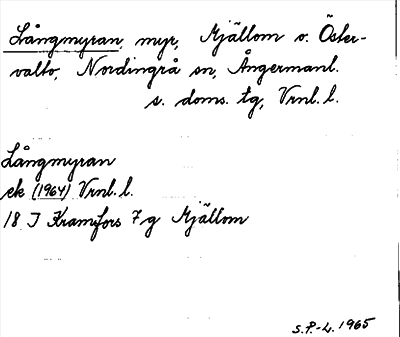 Långmyran, myr, Mjällom o. Öster-
valto, Nordingrå sn, Ångermanl.
s. doms. tg, Vrnl. l.
Långmyran
ek (1964) Vrnl. l.
18 J Kramfors 7 g Mjällom
S.P.-L. 1965